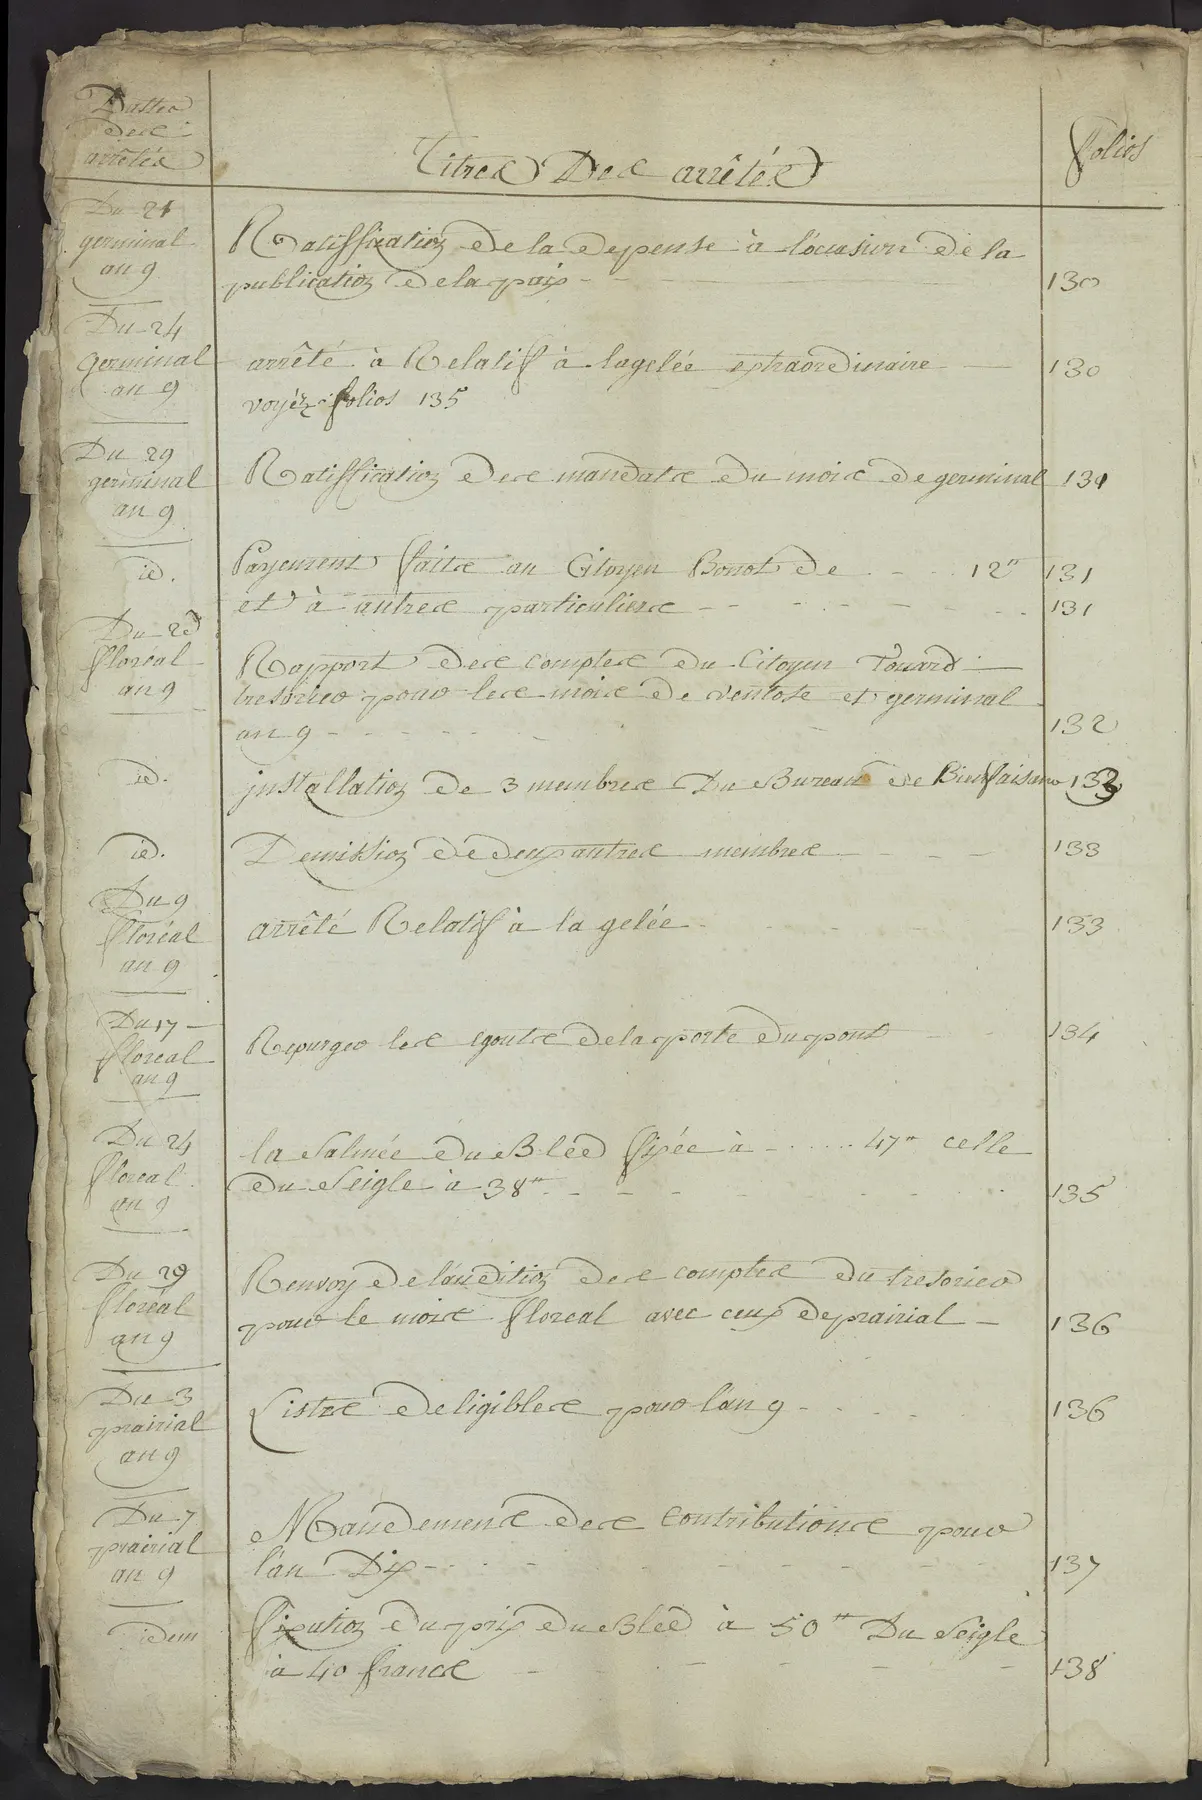 Dattes
des
arrêtés
Titres Des arrêtés
folios
Du 21
germinal
an 9
Ratiffication de la depense à l'occasion de la
publication de la paix
130
Du 24
Germinal
an 9
arrêté à Relatif à la gelée extraordinaire
130
voyéz folios 135
Du 29
germinal
an 9
Ratiffication des mandats du mois de germinal
131
id.
Payement faits au Citoyen Bonot de 12"
131
et à autres particuliers
131
Du
floréal
an 9
Rapport des comptes du Citoyen
tresorier pour les mois de ventose et germinal
an 9
132
id.
installation de 3 membres Du Bureau de Bienfaisance
133
id.
Demission de deux autres membres
133
Du 9
floréal
an 9
arrêté Relatif à la gelée
133
Du 17
floreal
an 9
Repurger les egouts de la porte du pont
134
Du 24
floreal
an 9
la Salmée du Bléd fixée à 47" celle
du Seigle à 38"
135
Du 29
floréal
an 9
Renvoy de l'audition des comptes du tresorier
pour le mois floreal avec ceux de prairial
136
Du 3
prairial
an 9
Listes deligibles pour l'an 9
136
Du 7
prairial
an 9
Mandements des contributions pour
l'an Dix
137
idem
fixation du prix du Bléd à 50" Du Seigle
à 40 francs
138